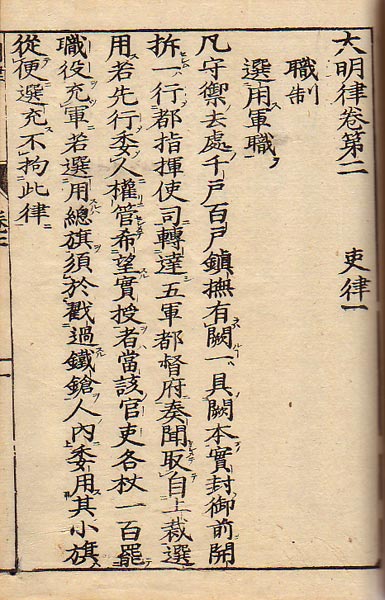 大明律卷第二 吏律一
職制
選用軍職
凡守禦去處千戸百戸鎮撫有闕一具闕本實封御前開
拆一行都指揮使司轉達五軍都督府奏聞取自上裁選
用若先行委人權管希望實授者當該官吏各杖一百罷
職役充軍若選用總旗須於戳過鐵鎗人內委用其小旗
從便選充不拘此律